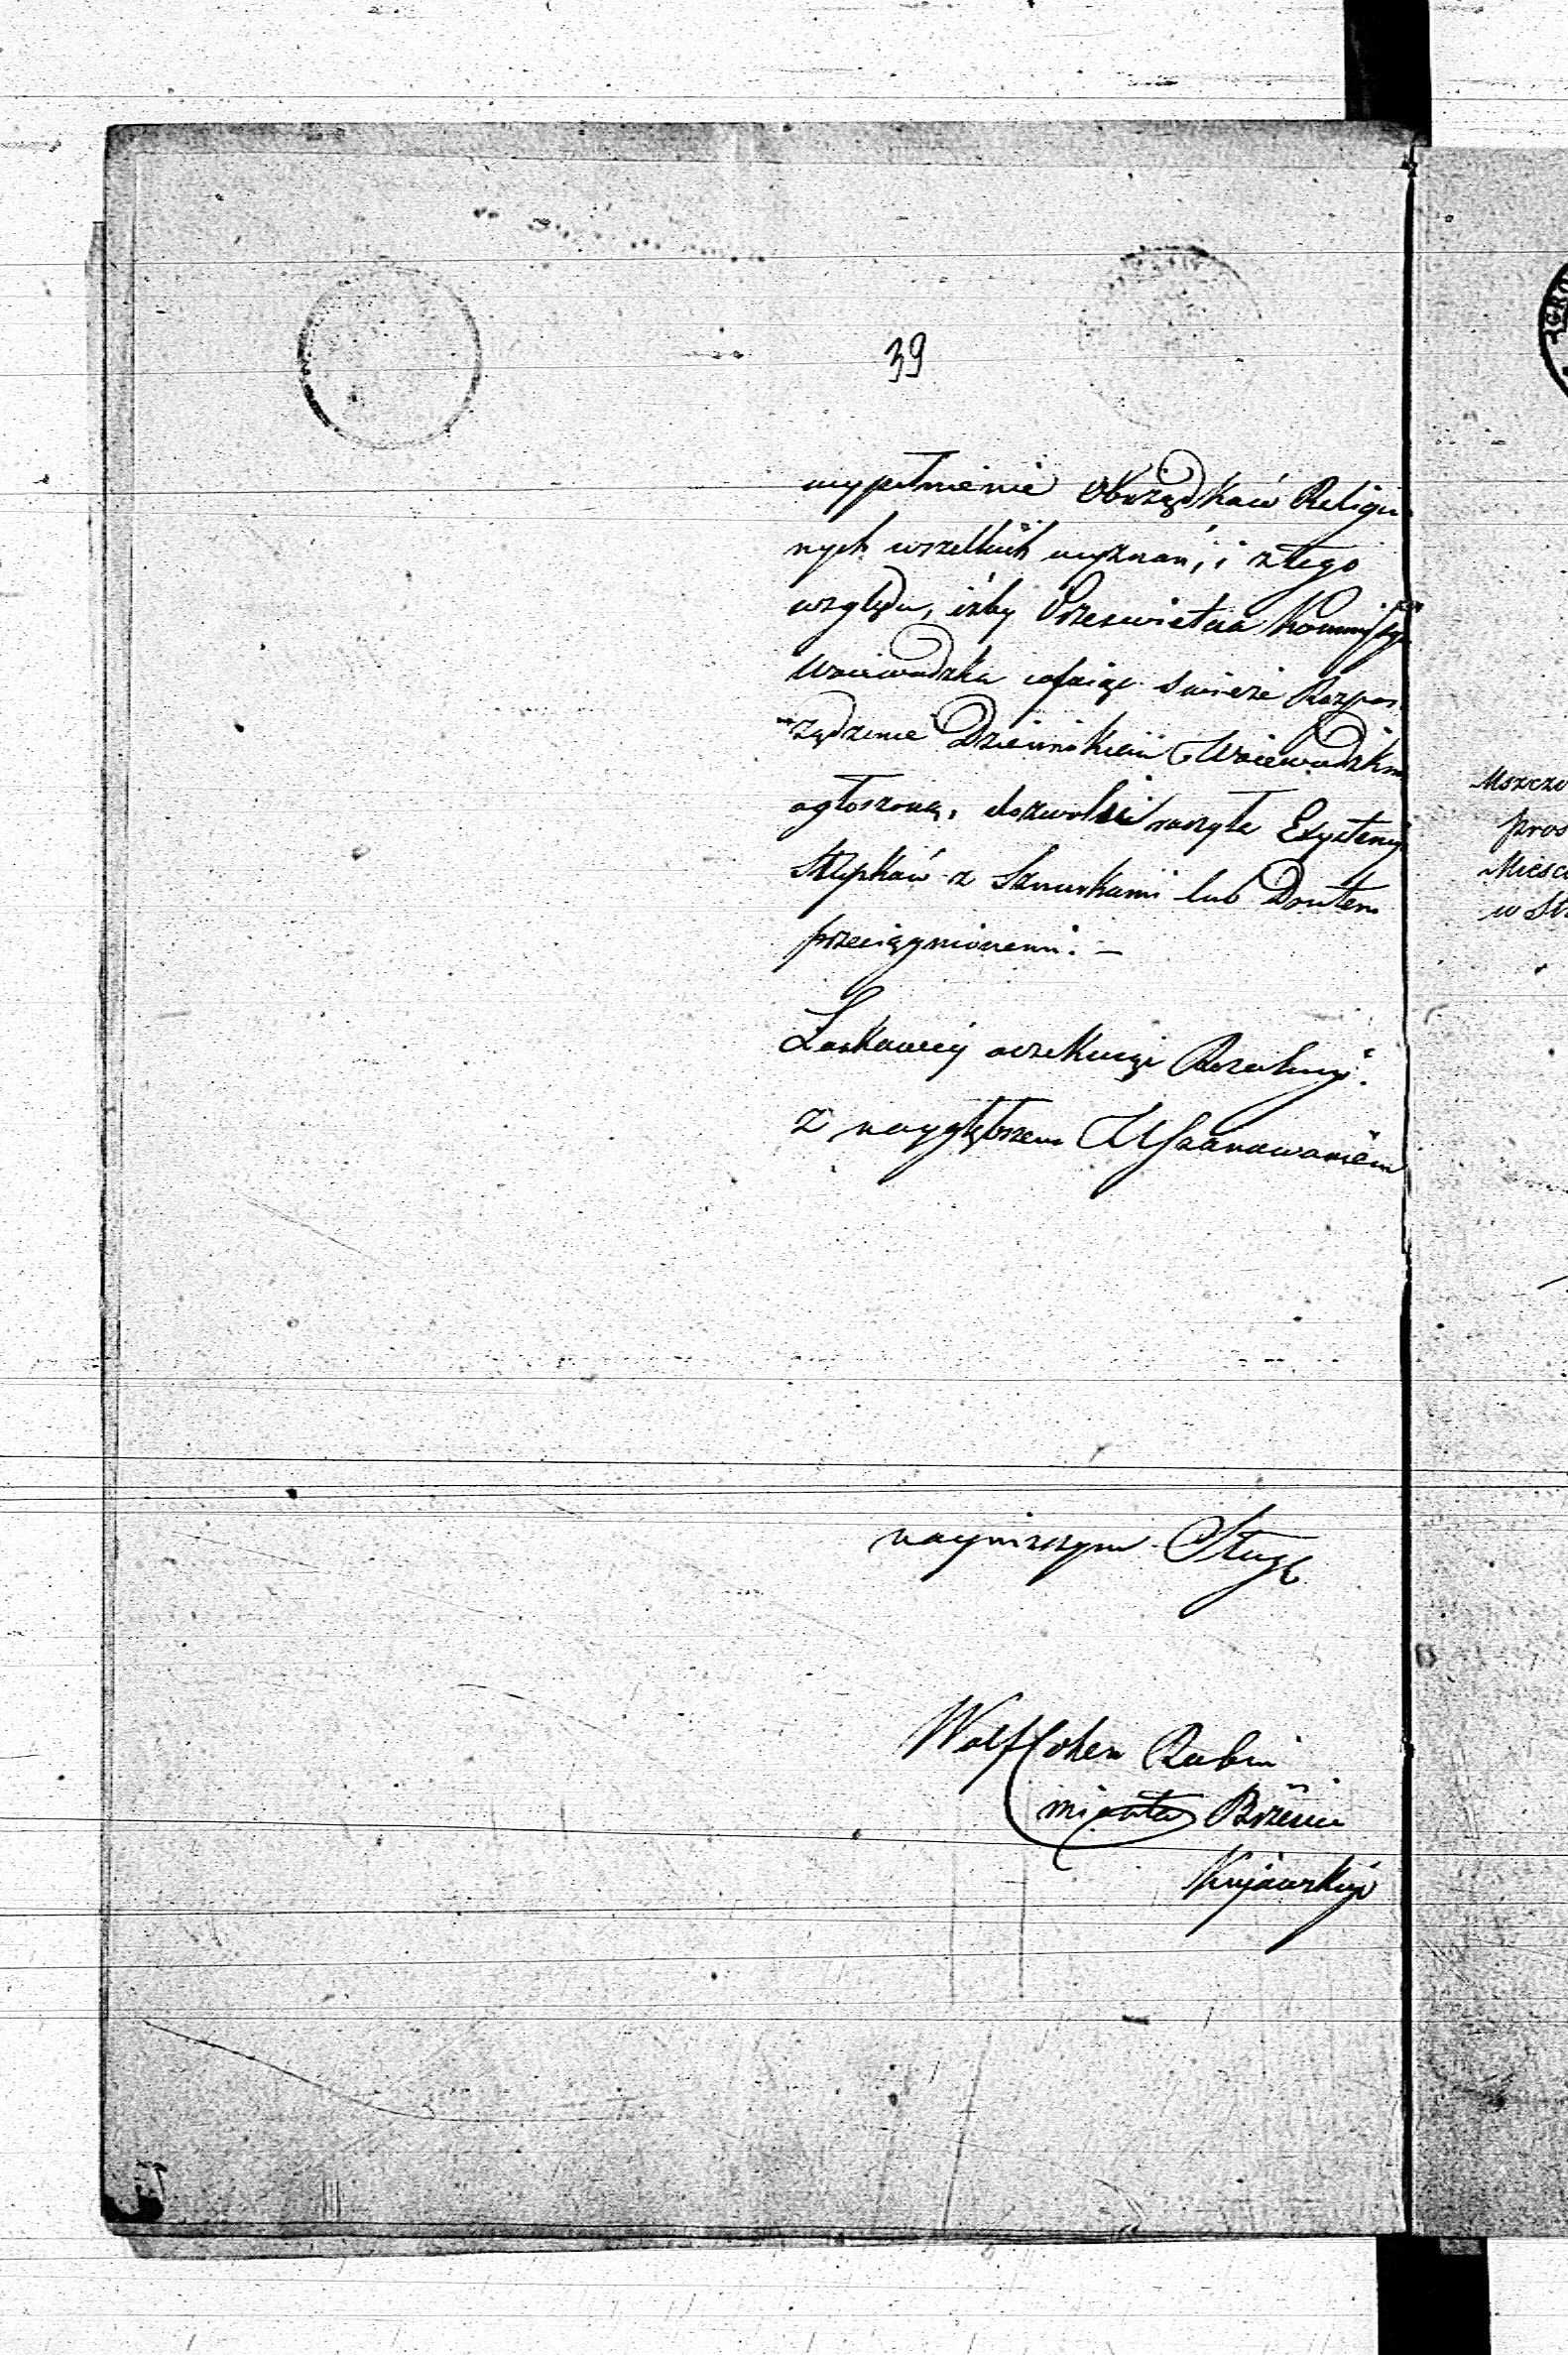 39
wypełnienie Obrządków Religii
nych wszelkich wyznań, i z tego
względu, iżby Prześwietna Kommissya
Woiewodzka cofaiąc swieże Rozpor
ządzenie Dziennikiem Woiewodzkim
ogłoszoną, dozwolić raczyła Exystencyi
Słupków z Sznurkami lub Drutem
przeciągnionemi. —
Łaskawey oczekuiąc Rezolucyi.
Z naygłębszem Uszanowaniem
naynizszym Sługą
Wolf Cohen Rabin
miasta Brześcia
Kujawskiego
Mszczo
pros
Miesc
w St